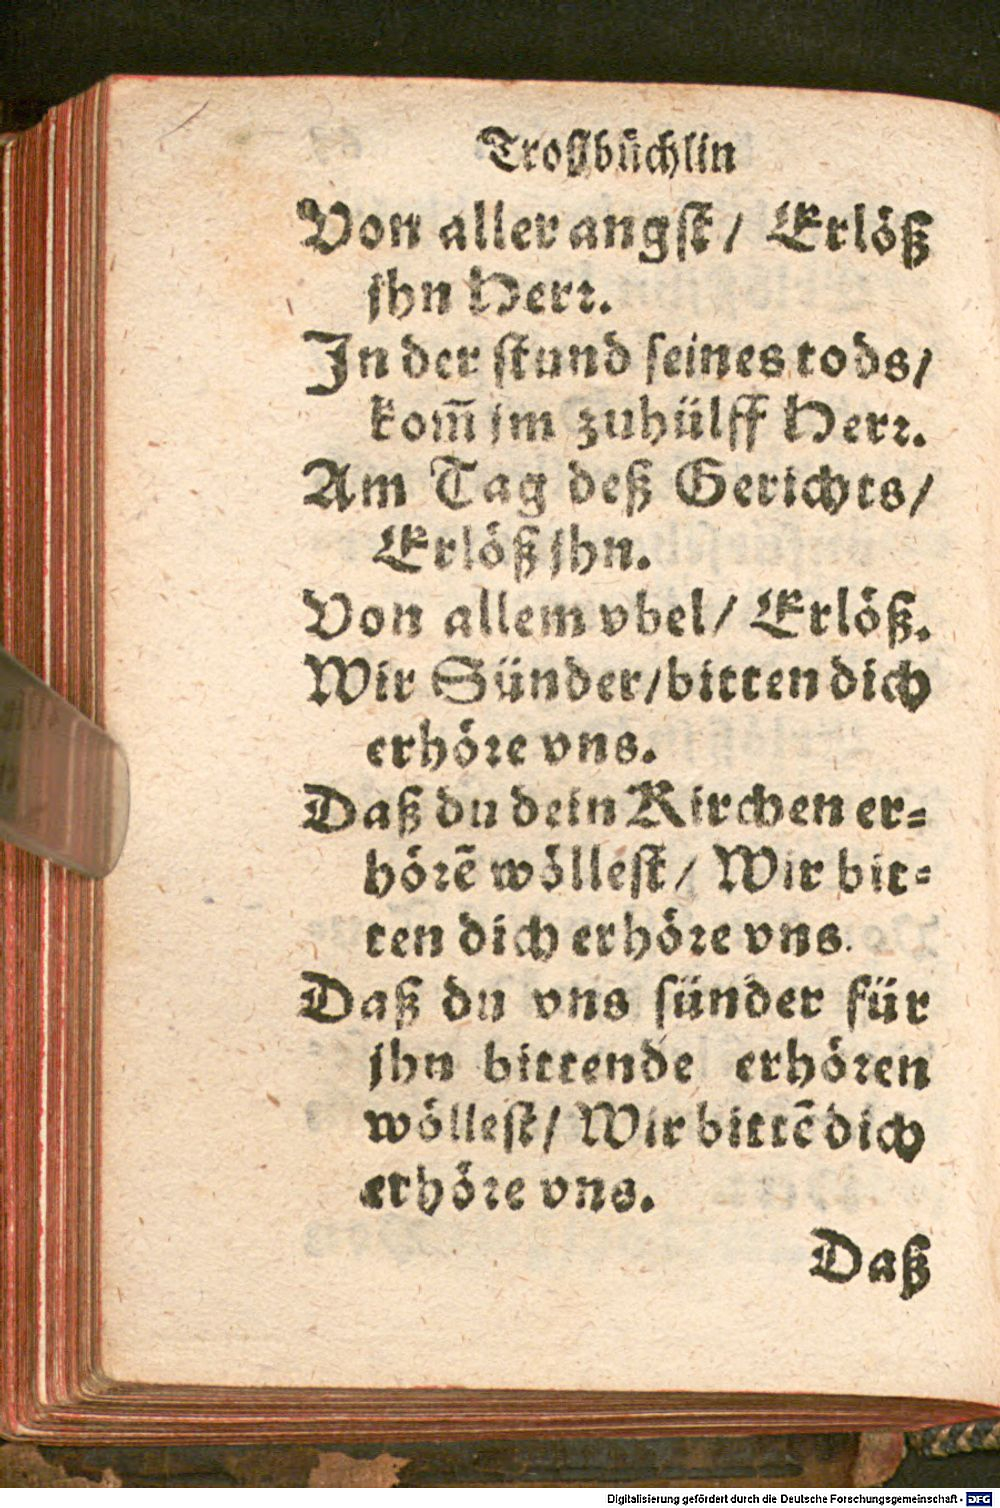 Troſtbüchlin
Von aller angſt/ Erlöß
jhn Herꝛ.
In der ſtund ſeines tods/
kom̃ jm zuhülff Herꝛ.
Am Tag deß Gerichts/
Erlöß jhn.
Von allem vbel/ Erlöß.
Wir Sünder/bitten dich
erhöꝛe vns.
Daß du dein Kirchen er⸗
höꝛẽ wölleſt/ Wir bit⸗
ten dich erhöꝛe vns.
Daß du vns ſünder für
jhn bittende erhöꝛen
wölleſt/ Wir bittẽ dich
erhöꝛe vns.
Daß
Digitalisierung gefördert durch die Deutsche Forschungsgemeinschaft - DFG